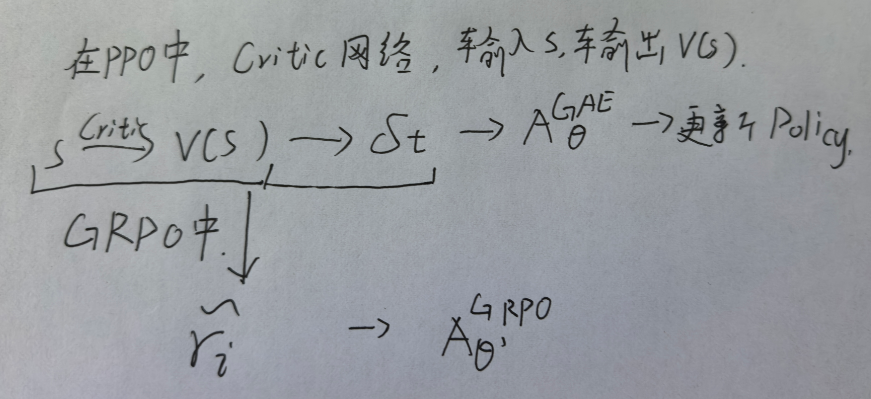 在PPO中, Critic 网络, 输入 S, 输出 V(s).
S Critic→ V(S) → δt → A_θ^GAE → 更新 Policy.
GRPO中.
r̃_i → A_θ'^GRPO